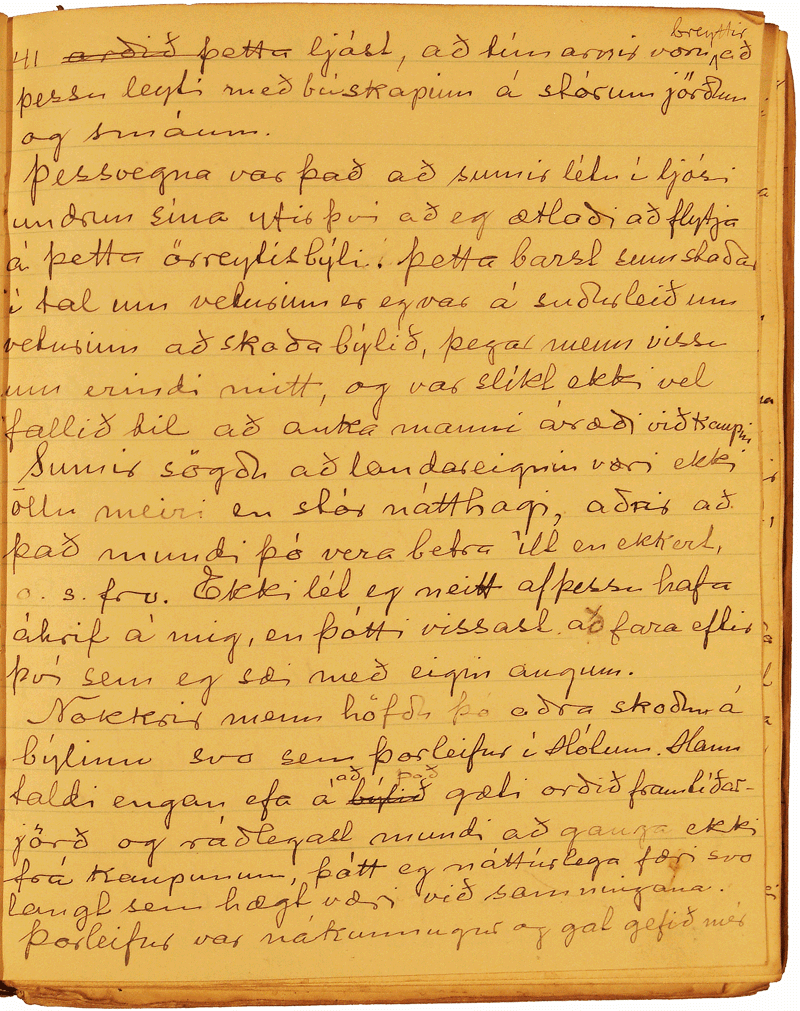 41 orðið þetta ljóst, að tímarnir voru breyttir að
þessu leyti með búskapinn á stórum jörðum
og smáum.
Þessvegna var það að sumir létu í ljósi
undrun sína yfir því að eg ætlaði að flytja
á þetta örreytisbýli. Þetta barst sumstaðar
í tal um veturinn er eg var á suðurleið um
veturinn að skoða býlið, þegar menn vissu
um erindi mitt, og var slíkt ekki vel
fallið til að auka manni áræði við kaupin
Sumir sögðu að landareignin væri ekki
öllu meiri en stór nátthagi, aðrir að
það mundi þó vera betra illt en ekkert,
o. s. frv. Ekki lét eg neitt af þessu hafa
áhrif á mig, en þótti vissast að fara eftir
því sem eg sæi með eigin augum.
Nokkrir menn höfðu þó aðra skoðun á
býlinu svo sem Þorleifur í Hólum. Hann
taldi engan efa á að býlið það gæti orðið framtíðar-
jörð og ráðlegast mundi að ganga ekki
frá kaupunum, þótt eg náttúrlega færi svo
langt sem hægt væri við samningana.
Þorleifur var nákunnugur og gat gefið mér